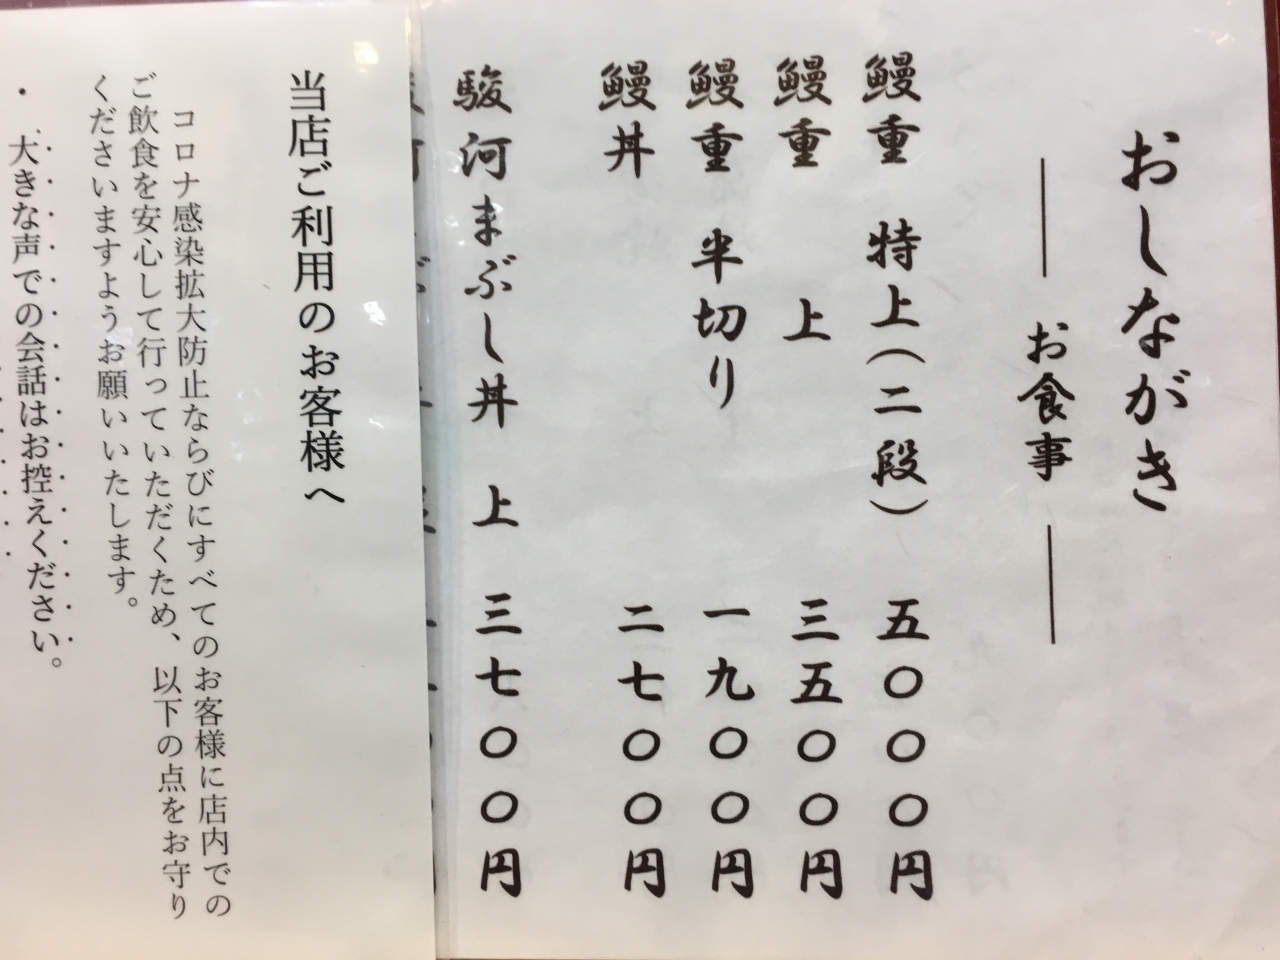 おしながき
お食事
鰻重 特上(二段) 五〇〇〇円
鰻重 上 三五〇〇円
鰻重 半切り 一九〇〇円
鰻丼 二七〇〇円
駿河まぶし丼 上 三七〇〇円
当店ご利用のお客様へ
コロナ感染拡大防止ならびにすべてのお客様に店内での
ご飲食を安心して行っていただくため、以下の点をお守り
くださいますようお願いいたします。
・大きな声での会話はお控えください。